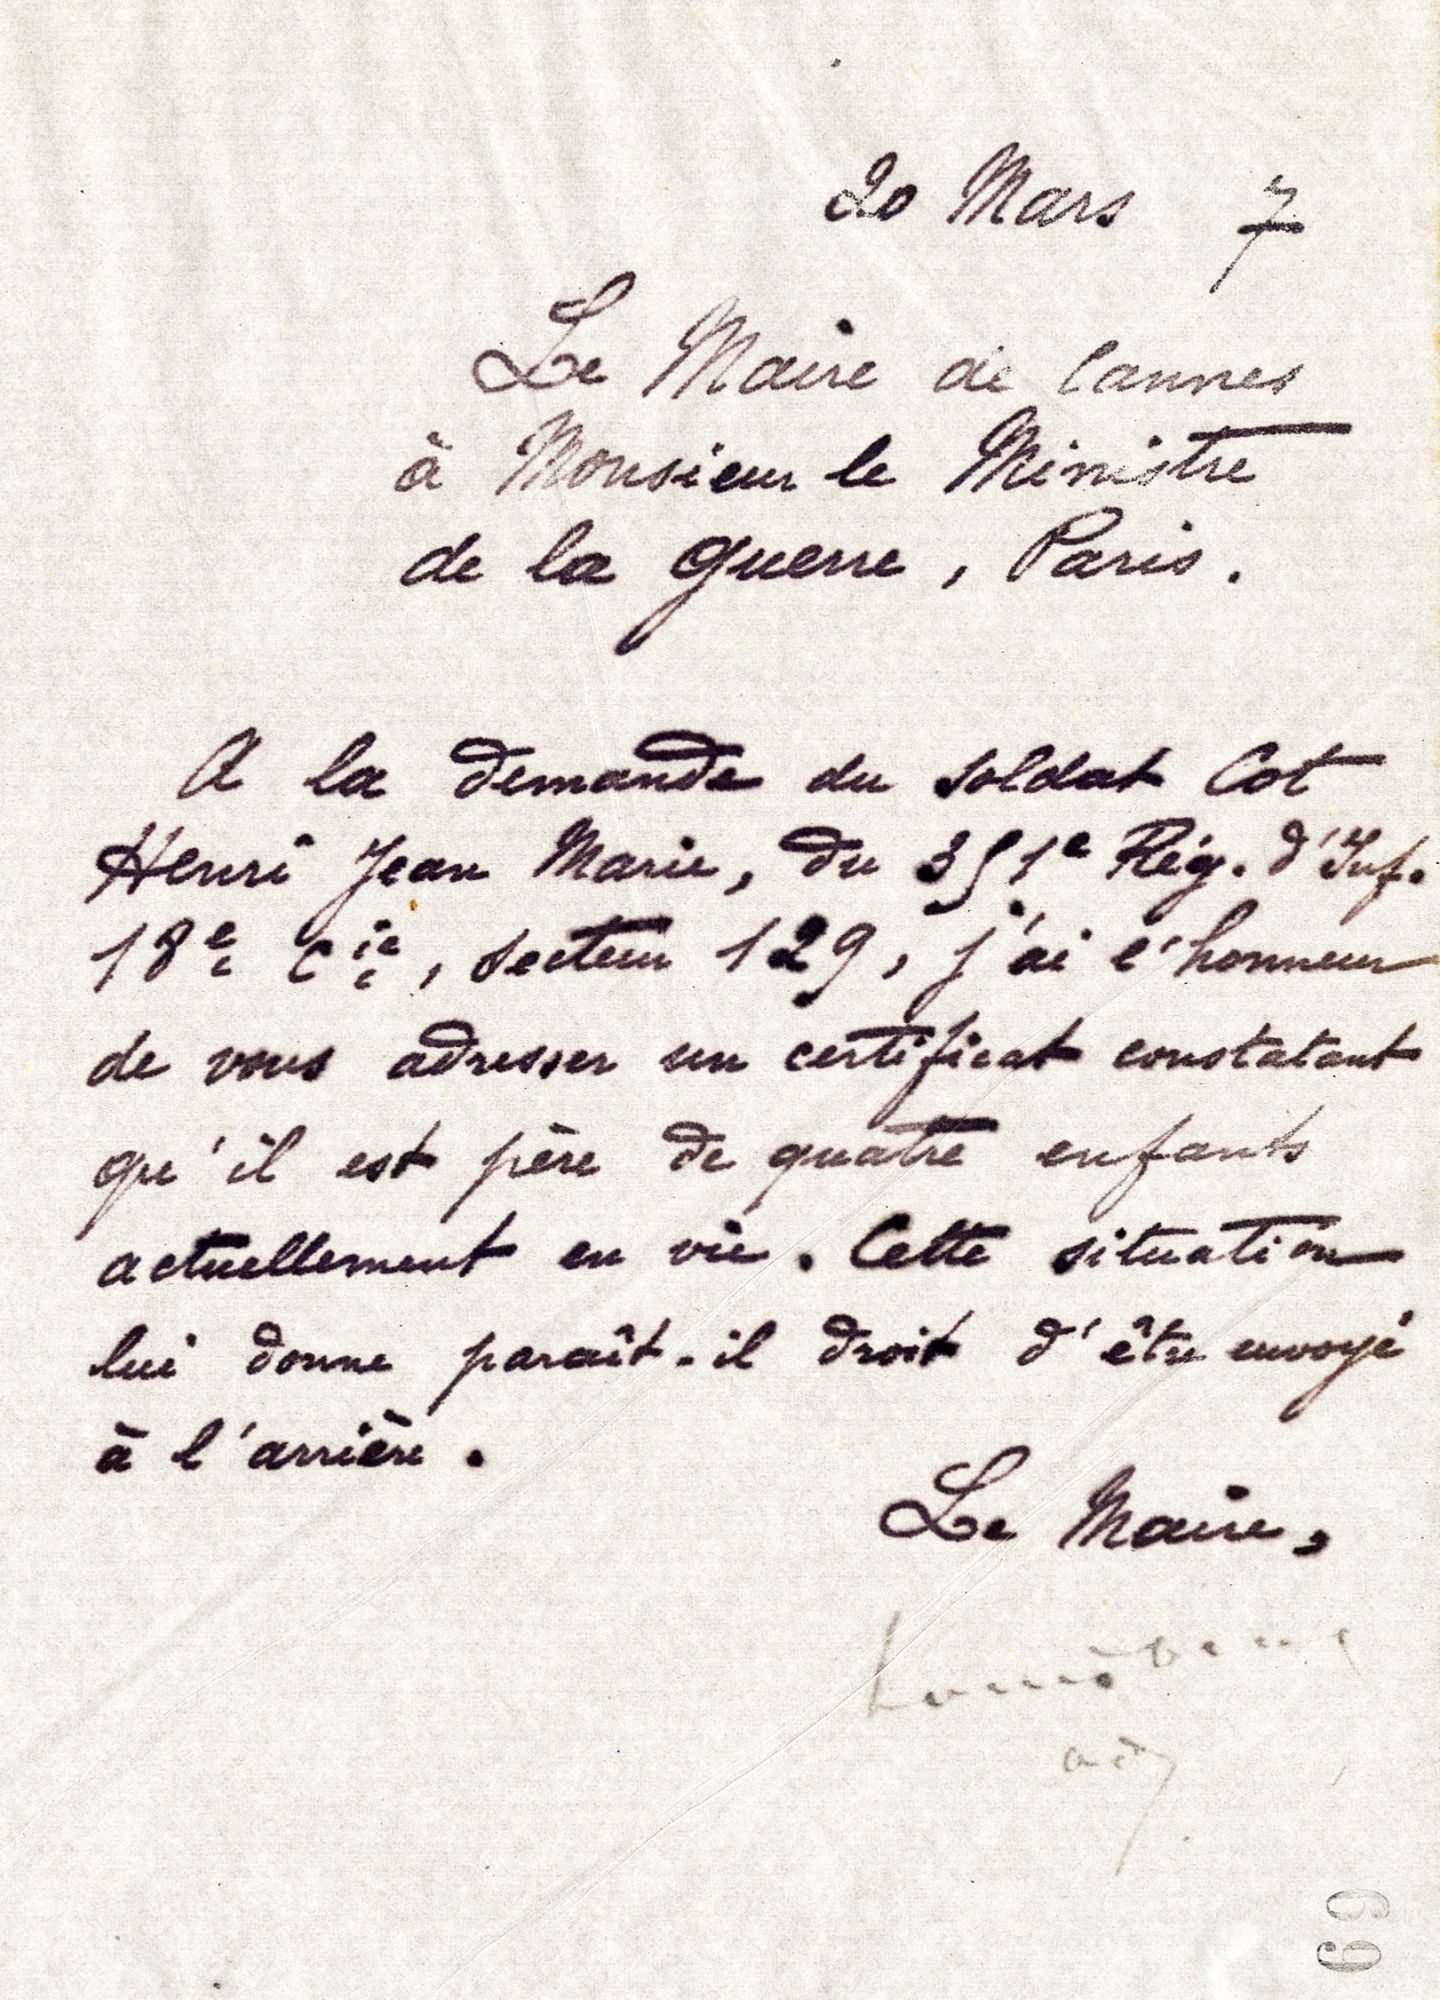 20 Mars 7
Le Maire de Cannes
à Monsieur le Ministre
de la guerre, Paris.
A la demande du soldat Cot
Henri Jean Marie, du 351e Rég. d'Inf.
18e Cie, secteur 129, j'ai l'honneur
de vous adresser un certificat constatant
qu'il est père de quatre enfants
actuellement en vie. Cette situation
lui donne paraît-il droit d'être envoyé
à l'arrière.
Le Maire,
69